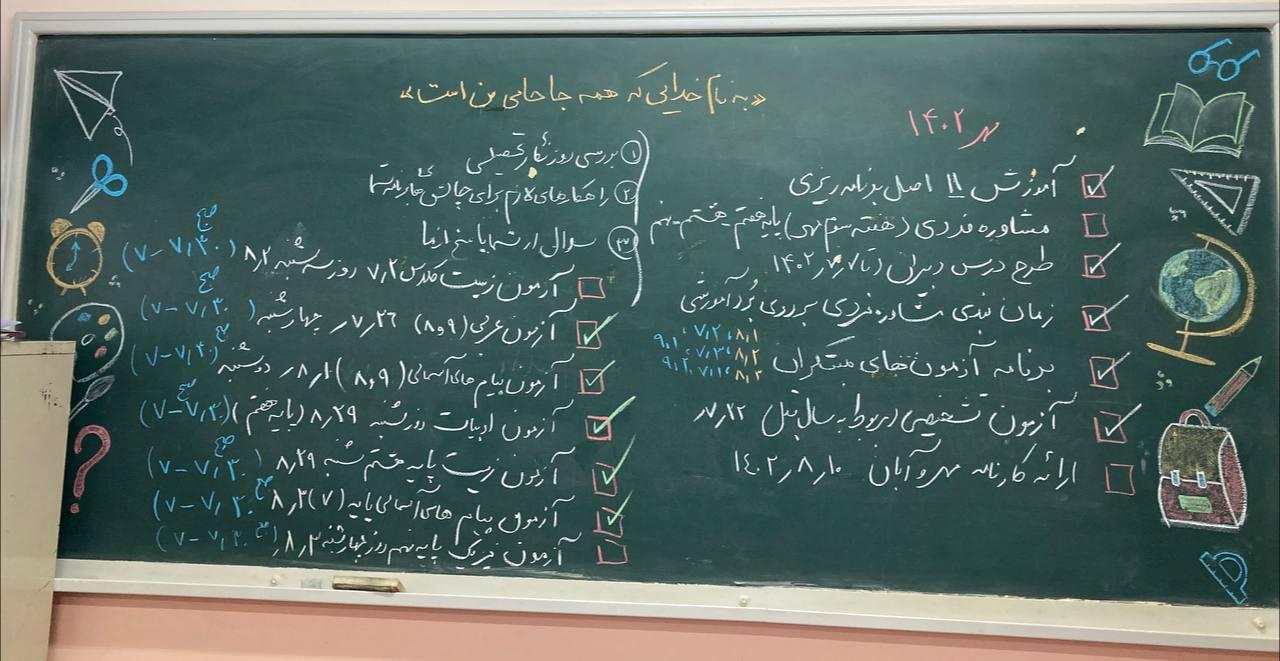 «به نام خدایی که همه جا حامی من است»
مهر ۱۴۰۲
آموزش ۱۱ اصل برنامه ریزی
مشاوره فردی (هفته سوم مهر) پایه هفتم-هشتم-نهم
طرح درس دبیران (تا ۷/۷/۱۴۰۲
زمان بندی مشاوره فردی بر روی بُرد آموزشی
برنامه آزمون های مبتکران
آزمون تشخیصی (مربوط به سال قبل ۷/۲۲
ارائه کارنامه مهر و آبان ۱۴۰۲/۸/۱۰
① بررسی روزنگار تحصیلی
② راهکارهای لازم برای چالش های نامه شما
③ سوال از شما پاسخ از ما
آزمون زیست کلاس ۷/۲ روز سه شنبه ۸/۲ (۷-۷/۳۰) صبح
آزمون عربی (۸و۹) ۷/۲۶ چهارشنبه (۷-۷/۳۰) صبح
آزمون پیام های آسمانی (۸و۹) ۸/۱ دوشنبه (۷-۷/۳۰) صبح
آزمون ادبیات دوشنبه ۸/۲۹ (پایه هفتم) (۷-۷/۳۰) صبح
آزمون زیست پایه هشتم شنبه ۸/۲۹ (۷-۷/۳۰) صبح
آزمون پیام های آسمانی پایه (۷) ۸/۳ (۷-۷/۳۰) صبح
آزمون فیزیک پایه نهم روز چهارشنبه ۸/۳ (۷-۷/۳۰) صبح